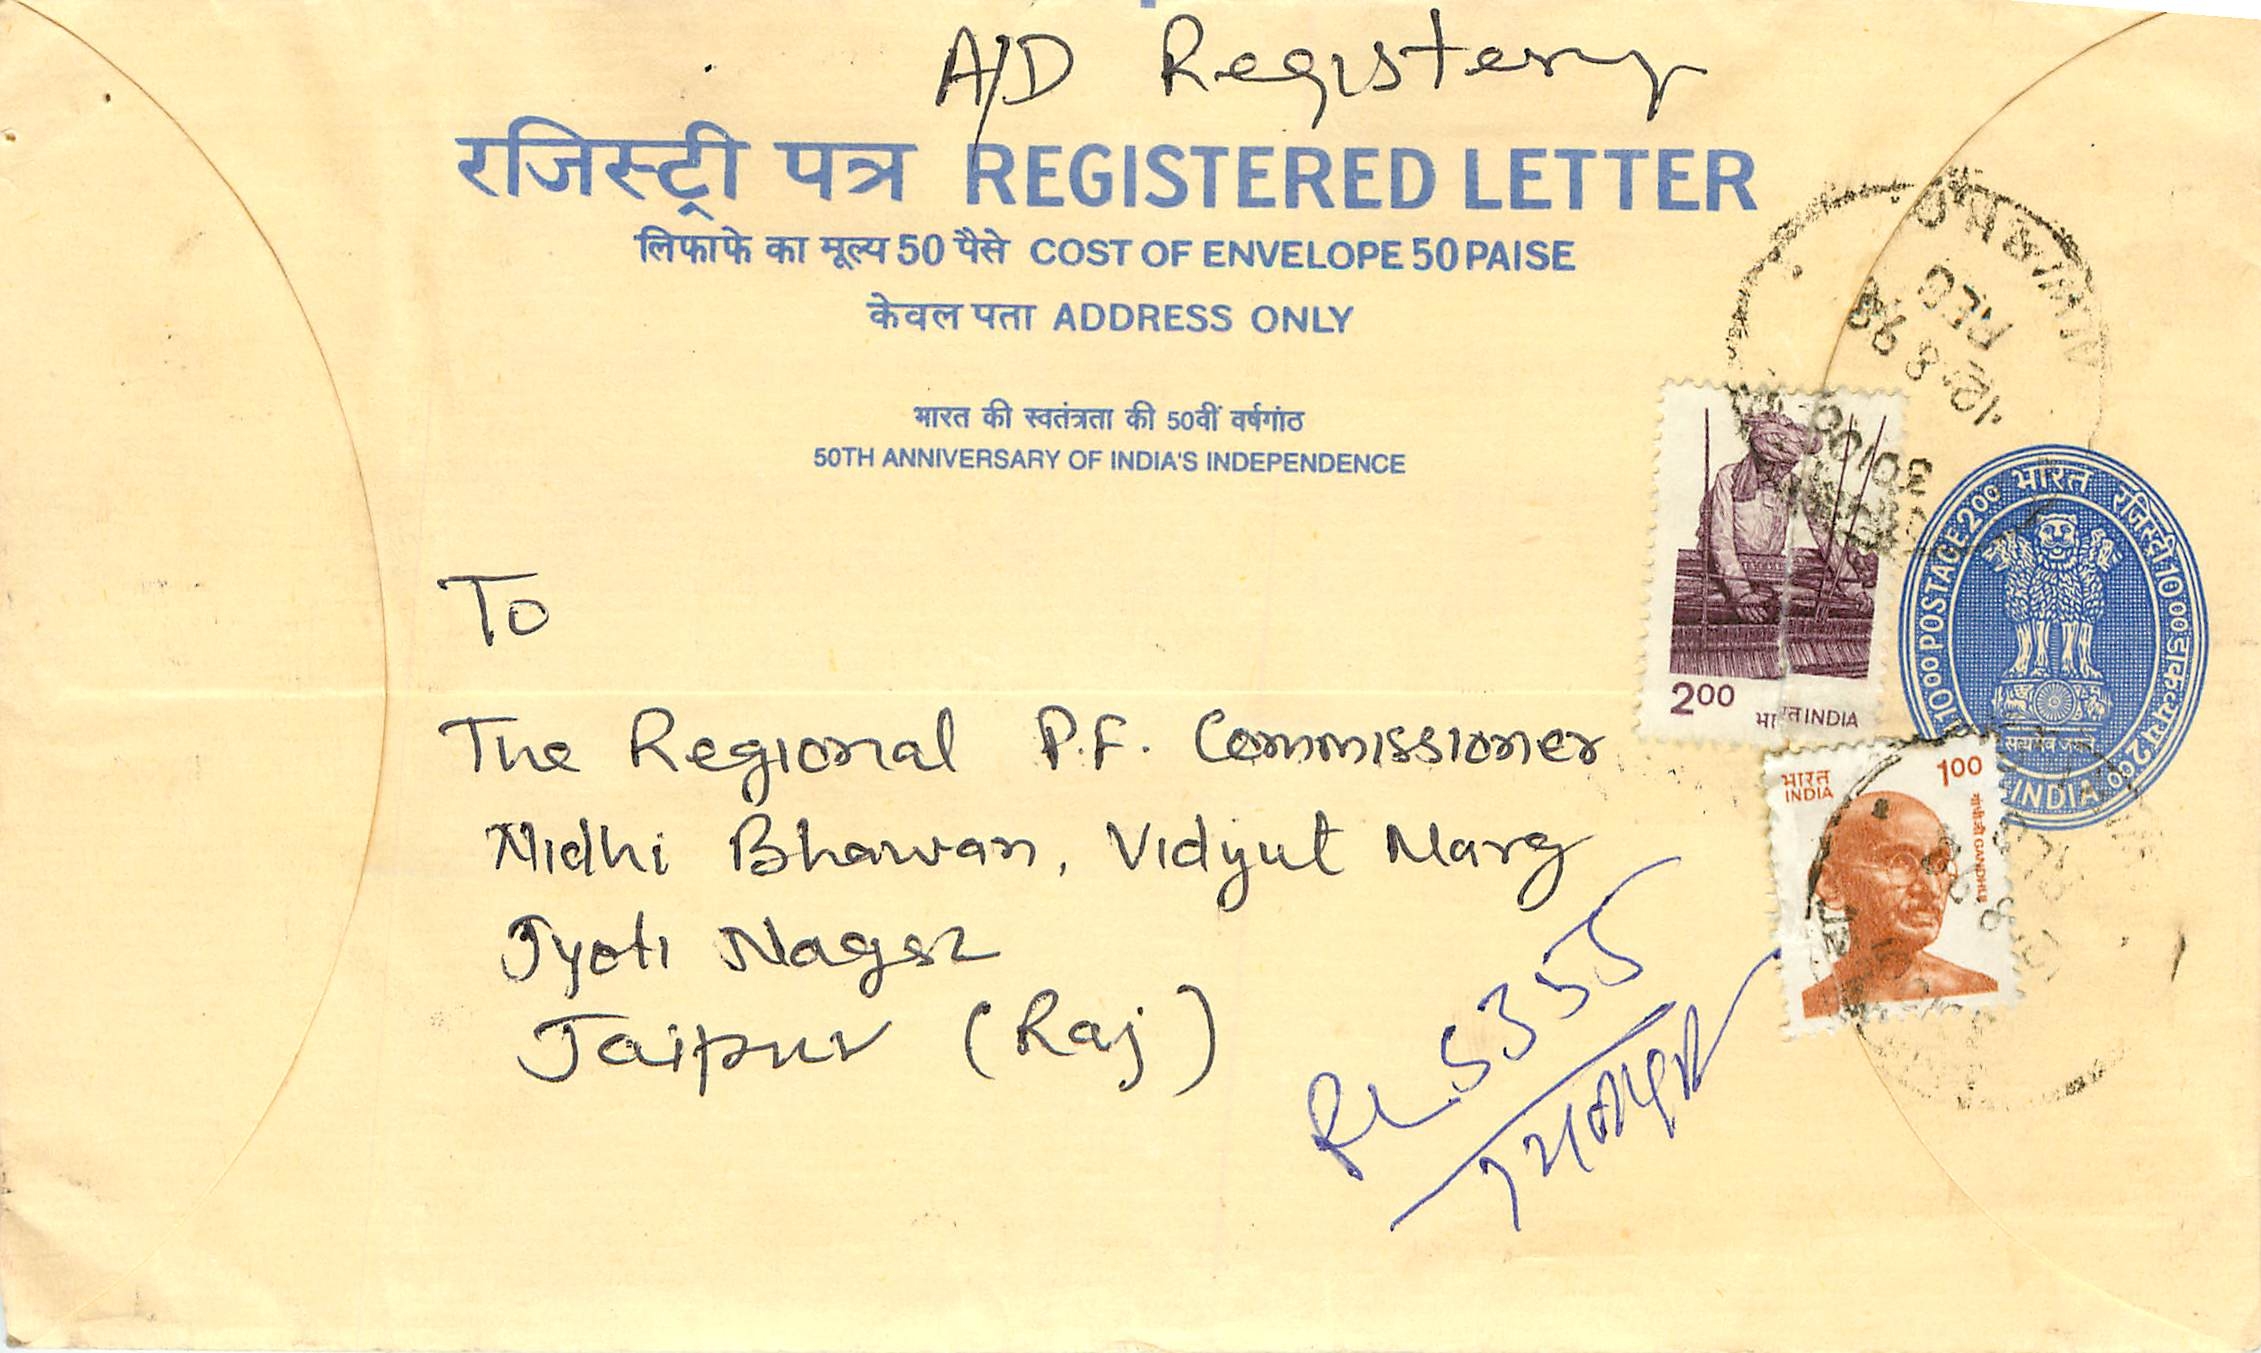 A/D Registery
रजिस्ट्री पत्र REGISTERED LETTER
लिफाफे का मूल्य 50 पैसे COST OF ENVELOPE 50 PAISE
केवल पता ADDRESS ONLY
भारत की स्वतंत्रता की 50वीं वर्षगांठ
50TH ANNIVERSARY OF INDIA'S INDEPENDENCE
REG
12.8.98
30100
भारत रजिस्ट्री 10 00 डाकव्यय 2 00
INDIA 10 00 POSTAGE 2 00
सत्यमेव जयते
2 00
भारत INDIA
भारत
INDIA
1 00
गांधीजी GANDHIJI
To
The Regional P.F. Commissioner
Nidhi Bhawan, Vidyut Marg
Jyoti Nagar
Jaipur (Raj)
RL 5355